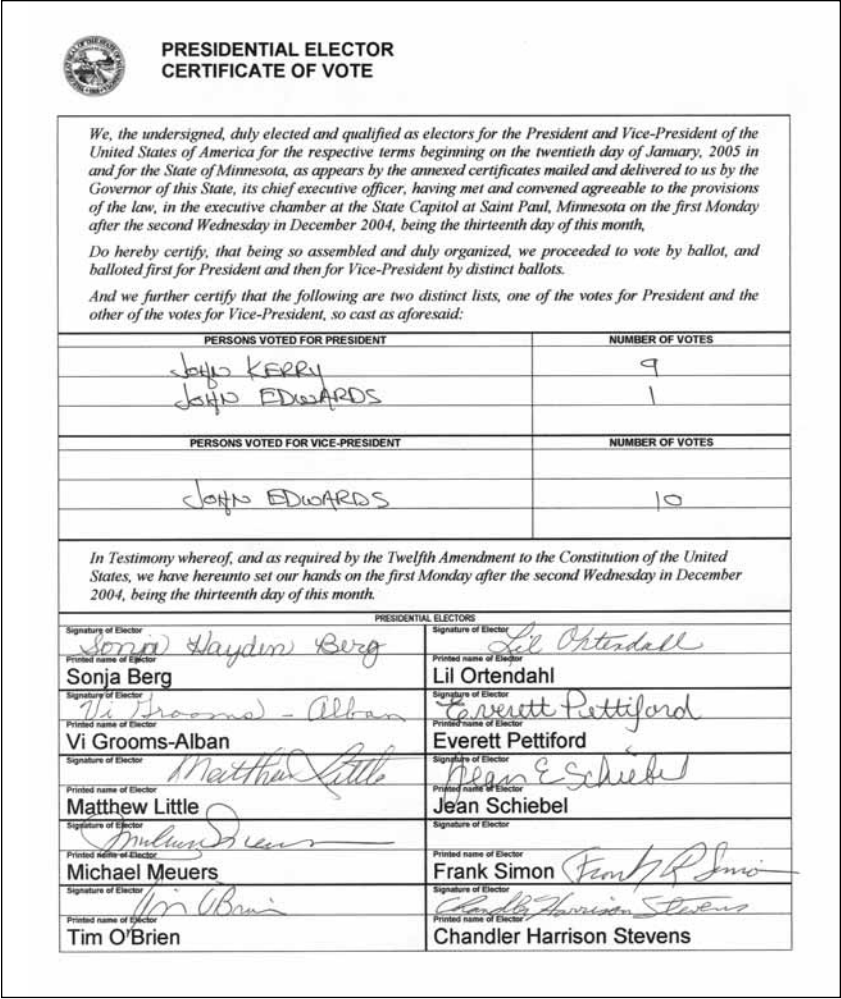 PRESIDENTIAL ELECTOR
CERTIFICATE OF VOTE
We, the undersigned, duly elected and qualified as electors for the President and Vice-President of the
United States of America for the respective terms beginning on the twentieth day of January, 2005 in
and for the State of Minnesota, as appears by the annexed certificates mailed and delivered to us by the
Governor of this State, its chief executive officer, having met and convened agreeable to the provisions
of the law, in the executive chamber at the State Capitol at Saint Paul, Minnesota on the first Monday
after the second Wednesday in December 2004, being the thirteenth day of this month,
Do hereby certify, that being so assembled and duly organized, we proceeded to vote by ballot, and
balloted first for President and then for Vice-President by distinct ballots.
And we further certify that the following are two distinct lists, one of the votes for President and the
other of the votes for Vice-President, so cast as aforesaid:
PERSONS VOTED FOR PRESIDENT NUMBER OF VOTES
JOHN KERRY 9
JOHN EDWARDS 1
PERSONS VOTED FOR VICE-PRESIDENT NUMBER OF VOTES
JOHN EDWARDS 10
In Testimony whereof, and as required by the Twelfth Amendment to the Constitution of the United
States, we have hereunto set our hands on the first Monday after the second Wednesday in December
2004, being the thirteenth day of this month.
PRESIDENTIAL ELECTORS
Signature of Elector Signature of Elector
Sonja Hayden Berg Lil Ortendahl
Printed name of Elector Printed name of Elector
Sonja Berg Lil Ortendahl
Signature of Elector Signature of Elector
Vi Grooms - Alban Everett Pettiford
Printed name of Elector Printed name of Elector
Vi Grooms-Alban Everett Pettiford
Signature of Elector Signature of Elector
Matthew Little Jean E Schiebel
Printed name of Elector Printed name of Elector
Matthew Little Jean Schiebel
Signature of Elector Signature of Elector
Printed name of Elector Printed name of Elector
Michael Meuers Frank Simon Frank R Simon
Signature of Elector Signature of Elector
Tim O'Brien Chandler Harrison Stevens
Printed name of Elector Printed name of Elector
Tim O'Brien Chandler Harrison Stevens